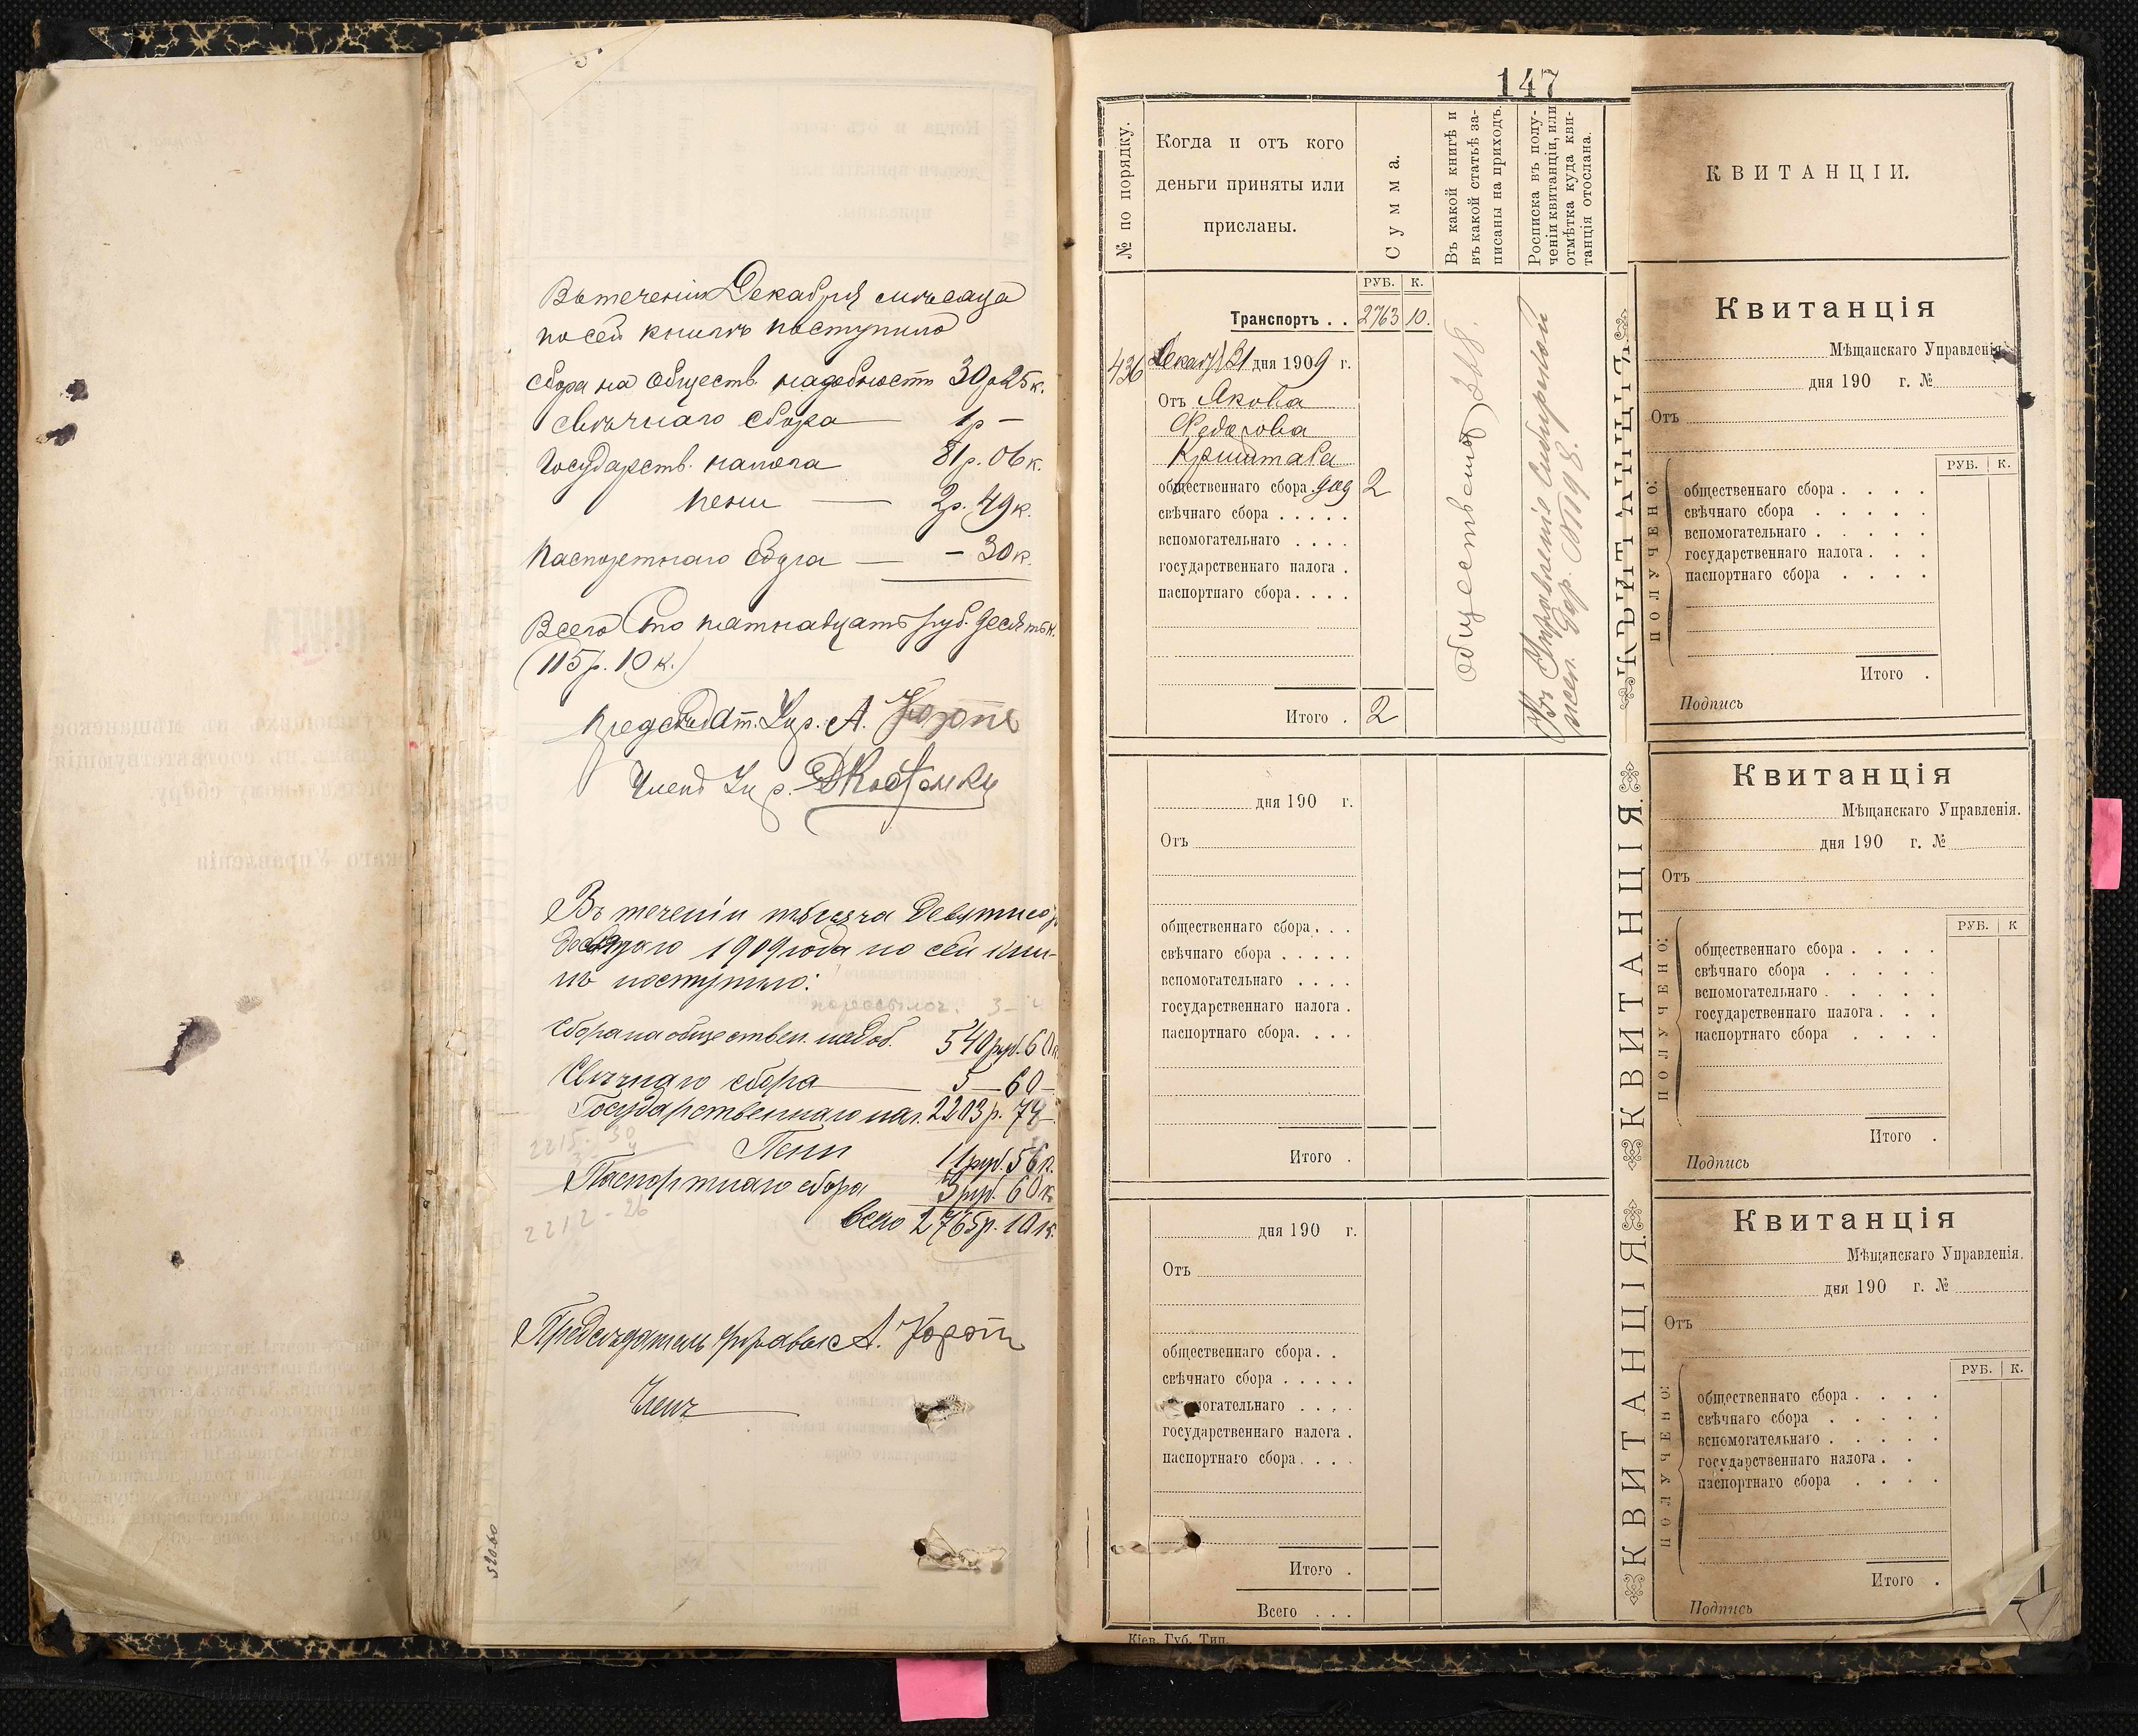 Въ теченіи Декабря мѣсяца
по сей книгѣ поступило
сбора на обществ. надобность 30р25к.
свѣчнаго сбора — 1р —
Государств. налога 81р. 06к.
пени — 2р. 49к.
паспортнаго сбора — — 30к.
Всего Сто пятнадцать руб. десять к.
(115р. 10к.)
Предсѣдат. Упр. А.
Членъ Упр.
Въ теченіи тысяча девятисотъ
девятаго 1909 года по сей кни-
гѣ поступило:
пересылоч. 3 –
Сбора на обществен. надоб. 540 руб. 60к
Свѣчнаго сбора — 5 — 60 —
Государственнаго нал. 2203р. 74
2215 - 30
Пени 11 руб. 56к.
Паспортнаго сбора 3 руб. 60к
2212 - 26
всего 2765р. 10к.
Предсѣдатель Управы А.
Членъ
147
№ по порядку.
Когда и отъ кого
деньги приняты или
присланы.
Сумма.
Въ какой книгѣ и
въ какой статьѣ за-
писаны на приходъ.
Росписка въ полу-
ченіи квитанціи, или
отмѣтка куда кви-
танція отослана.
РУБ. К.
Транспортъ . . 2763 10.
436 Декабр 31 дня 1909 г.
Отъ Якова
Федорова
Криштаба
общественнаго сбора 909 2
свѣчнаго сбора . . . . .
вспомогательнаго . . . .
государственнаго налога .
паспортнаго сбора . . . .
Итого . 2
общественной 368.
Въ Управленіе Сибирской
жел. дор. № 1798.
дня 190 г.
Отъ
общественнаго сбора . . .
свѣчнаго сбора . . . . .
вспомогательнаго . . . .
государственнаго налога .
паспортнаго сбора. . . .
Итого .
дня 190 г.
Отъ
общественнаго сбора . .
свѣчнаго сбора . . . . .
могательнаго . . . .
государственнаго налога .
паспортнаго сбора . . . .
Итого .
Всего . . .
Кіев. Губ. Тип.
КВИТАНЦІЯ.
КВИТАНЦІЯ.
КВИТАНЦІЯ.
КВИТАНЦІИ.
Квитанція
Мѣщанскаго Управленія
дня 190 г. №
Отъ
РУБ. К.
ПОЛУЧЕНО:
общественнаго сбора . . . .
свѣчнаго сбора . . . . .
вспомогательнаго . . . . .
государственнаго налога . . .
паспортнаго сбора . . . .
Итого .
Подпись
Квитанція
Мѣщанскаго Управленія.
дня 190 г. №
Отъ
РУБ. К
ПОЛУЧЕНО:
общественнаго сбора . . . .
свѣчнаго сбора . . . . .
вспомогательнаго . . . . .
государственнаго налога . . .
паспортнаго сбора . . . .
Итого .
Подпись
Квитанція
Мѣщанскаго Управленія.
дня 190 г. №
Отъ
РУБ. К.
ПОЛУЧЕНО:
общественнаго сбора . . . .
свѣчнаго сбора . . . . .
вспомогательнаго . . . . .
государственнаго налога . .
паспортнаго сбора . . . .
Итого .
Подпись